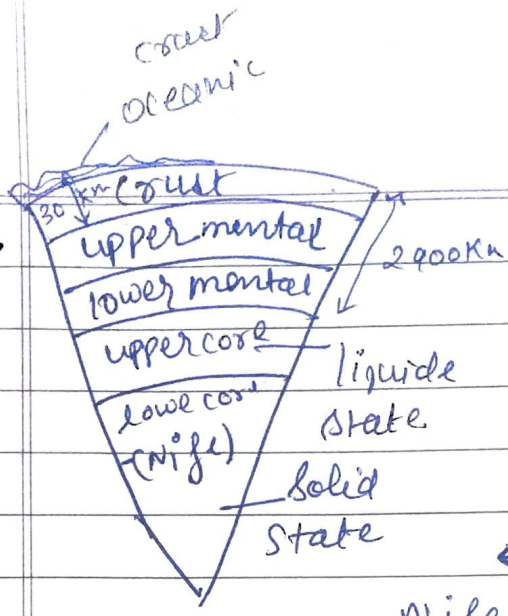 crust
oceanic
30 km crust
upper mental
2900Km
lower mental
upper core
liquide
state
lowe core
(Nife)
Solid
state